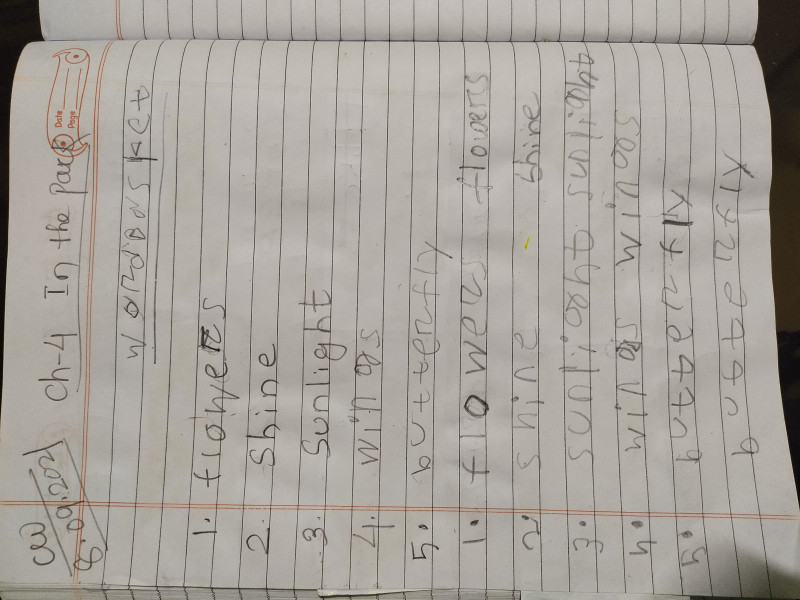 CW
8.09.2021
Date
Page
ch-4 In the park
wordBasket
1. flowers
2. Shine
3. Sunlight
4. wings
5. butterfly
1. flowers flowers
2. shine shine
3. sunlight sunlight
4. wings wings
5. butterfly
butterfly